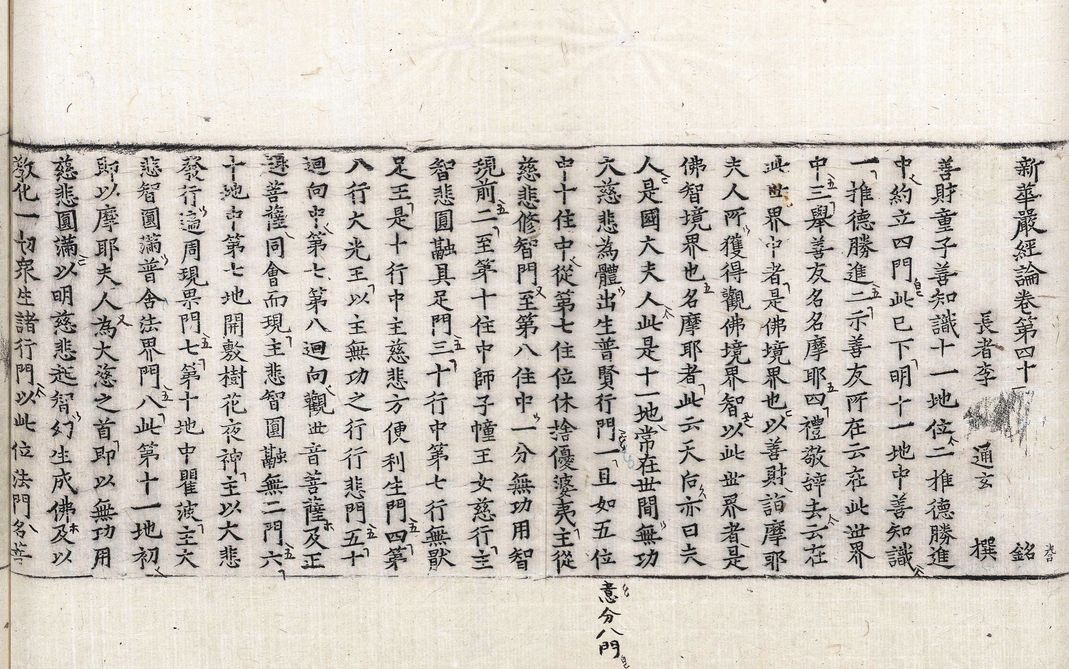 新華嚴經論卷第四十一 銘
長者李 通玄 撰
善財童子善知識十一地位二推德勝進
中約立四門此已下明十一地中善知識
一推德勝進二示善友所在云在此世界
中三舉善友名名摩耶四禮敬辞去云在
此世界中者是佛境界也以善財詣摩耶
夫人所獲得觀佛境界智以此世界者是
佛智境界也名摩耶者此云天后亦曰夫
人是國大夫人此是十一地常在世間無功
大慈悲為體出生普賢行門一且如五位
中十住中從第七住位休捨優婆夷主從
慈悲修智門至第八住中一分無功用智
現前二至第十住中師子幢王女慈行主
智悲圓融具足門三十行中第七行無猒
足王是十行中主慈悲方便利生門四第
八行大光王以主無功之行行悲門五十
迴向中第七第八迴向觀世音菩薩及正
趣菩薩同會而現主悲智圓融無二門六
十地中第七地開敷樹花夜神主以大悲
發行遍周現果門七第十地中瞿波主大
悲智圓滿普含法界門八此第十一地初
即以摩耶夫人為大慈之首即以無功用
慈悲圓滿以明慈悲起智幻生成佛及以
教化一切衆生諸行門以此位法門名菩
意分八門